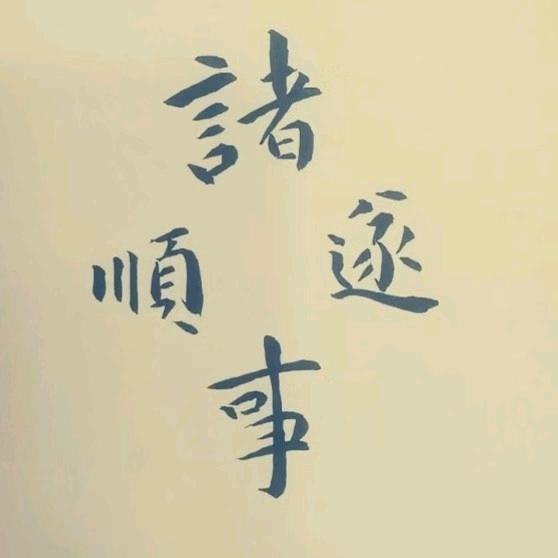 諸
事
順
遂